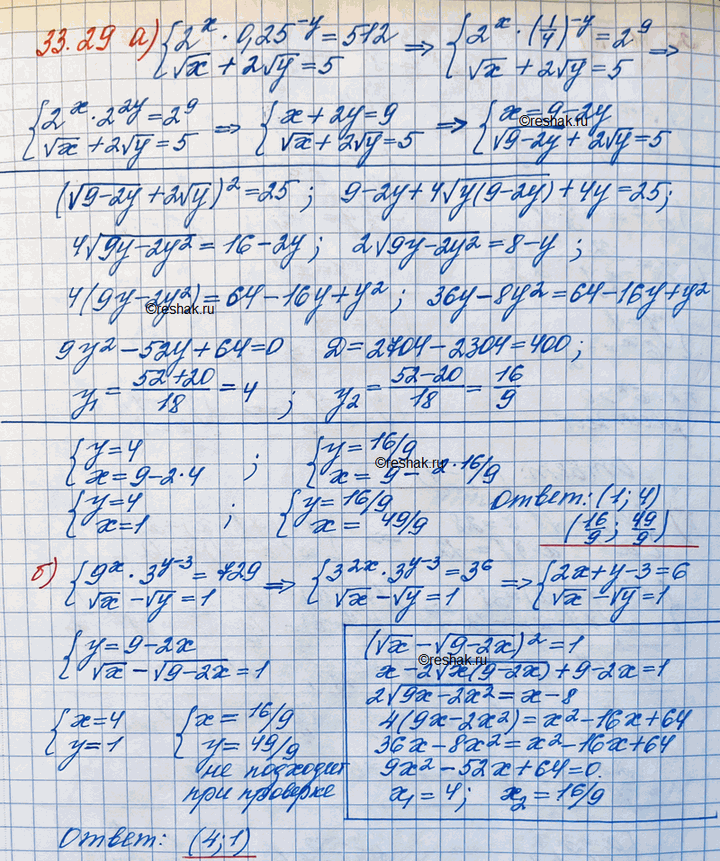 33.29 а) { 2^x · 0,25^{-y} = 512 ⇒ { 2^x · (1/4)^{-y} = 2^9 ⇒
√x + 2√y = 5 √x + 2√y = 5
{ 2^x · 2^{2y} = 2^9 ⇒ { x + 2y = 9 ⇒ { x = 9 - 2y
√x + 2√y = 5 √x + 2√y = 5 √(9-2y) + 2√y = 5
©reshak.ru
(√(9-2y) + 2√y)² = 25 ; 9 - 2y + 4√(y(9-2y)) + 4y = 25;
4√(9y-2y²) = 16 - 2y ; 2√(9y-2y²) = 8 - y ;
4(9y-2y²) = 64 - 16y + y² ; 36y - 8y² = 64 - 16y + y²
©reshak.ru
9y² - 52y + 64 = 0 D = 2704 - 2304 = 400;
y₁ = (52+20)/18 = 4 ; y₂ = (52-20)/18 = 16/9
{ y = 4 ; { y = 16/9
x = 9 - 2·4 x = 9 - 2·16/9
©reshak.ru
{ y = 4 ; { y = 16/9 Ответ: (1; 4)
x = 1 x = 49/9 (16/9; 49/9)
б) { 9^x · 3^{y-3} = 729 ⇒ { 3^{2x} · 3^{y-3} = 3^6 ⇒ { 2x + y - 3 = 6
√x - √y = 1 √x - √y = 1 √x - √y = 1
{ y = 9 - 2x
√x - √(9-2x) = 1
(√x - √(9-2x))² = 1
©reshak.ru
x - 2√(x(9-2x)) + 9 - 2x = 1
2√(9x-2x²) = x - 8
4(9x-2x²) = x² - 16x + 64
36x - 8x² = x² - 16x + 64
9x² - 52x + 64 = 0.
x₁ = 4; x₂ = 16/9
{ x = 4 { x = 16/9
y = 1 y = 49/9
не подходит
при проверке
Ответ: (4; 1)